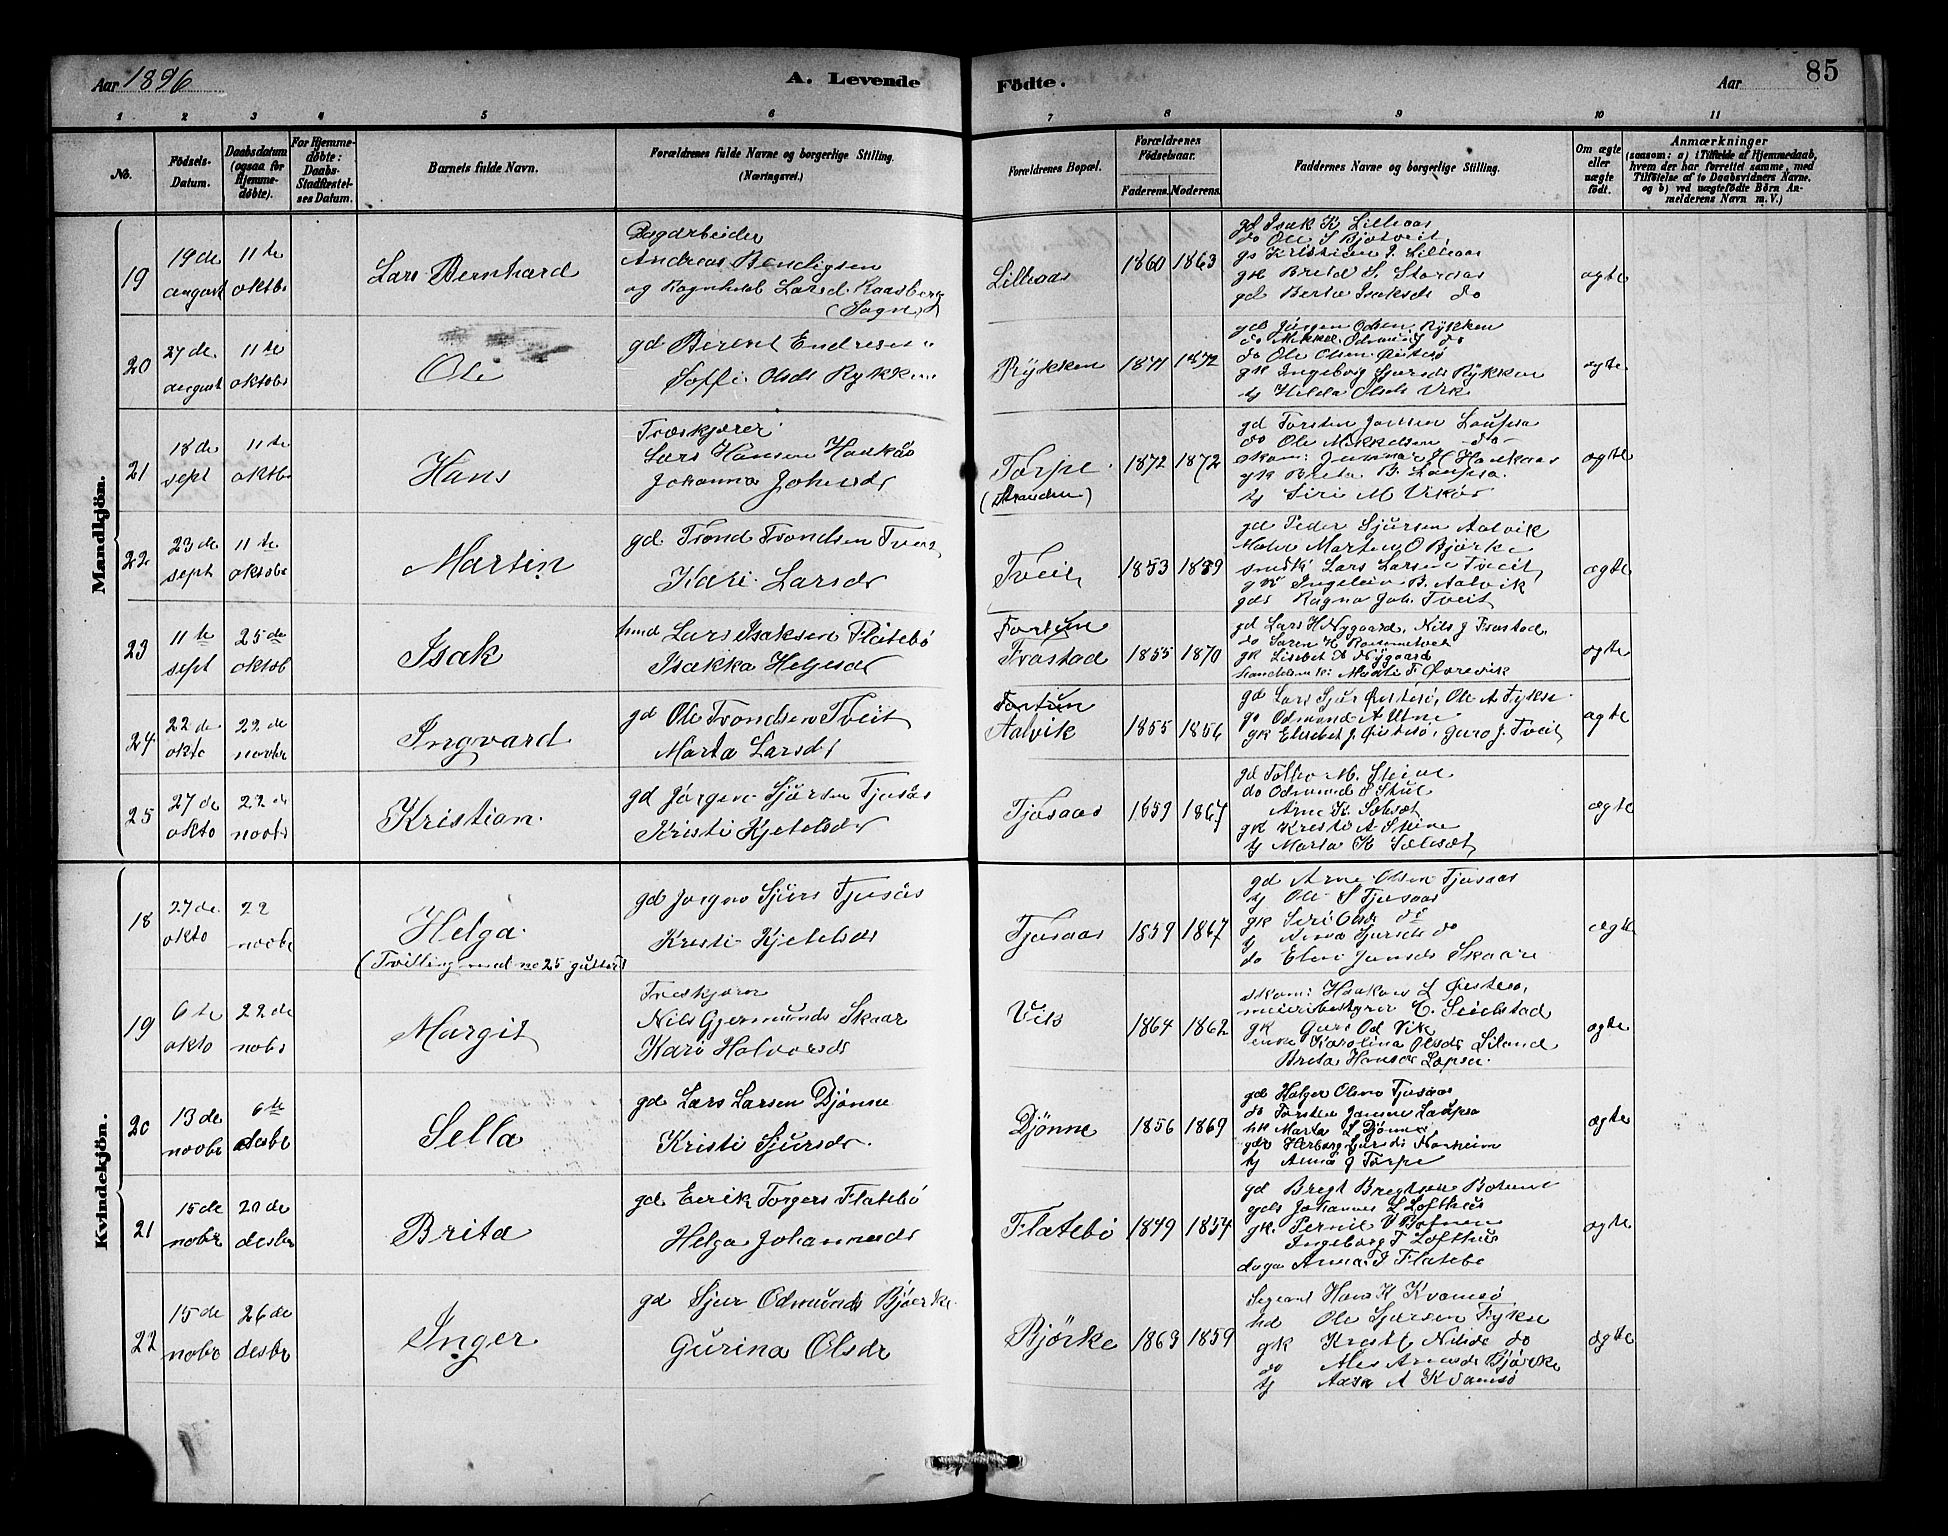 Aar 1896
A. Levende
Födte.
Aar
85
1 2 3 4 5 6 7 8 9 10 11
No.
Födsels-Datum.
Daabsdatum (ogsaa for Hjemme-döbte).
For Hjemme-döbte: Daabs-Stadfæstel-ses Datum.
Barnets fulde Navn.
Forældrenes fulde Navne og borgerlige Stilling.
(Næringsvei.)
Forældrenes Bopæl.
Forældrenes Födselsaar.
Faderens. Moderens.
Faddernes Navne og borgerlige Stilling.
Om ægte eller uægte födt.
Anmærkninger
(saasom: a) i Tilfælde af Hjemmedaab, hvem der har forrettet samme, med Tilföielse af to Daabsvidners Navne. og b) ved uægtefödte Börn Anmelderens Navn m. V.)
Mandkjön.
19
19 de august
11 te oktobr
Lars Bernhard
Dagarbeider
Andreas Bendigsen
og Ragnhild Larsd. Kaasberg
(Sogn)
Lilleaas
1860 1863
gd Isak K Lilleaas
do Ole S Bjotveit
gs Kristian I. Lilleaas
gk Brita S. Storaas
gd Berta Isaksdr do
ægte
20
27 de august
11 te oktobr
Ole
gd Berent Endresen
Soffi Olsdr Rykken
Rykken
1871 1872
gd Jörgen Odsen Rykken
do Mikkel Odmunds do
do Ole Olsen Öistesö
gk Ingeborg Sjursdr Rykken
tj Hilda Olsdr Vik
ægte
21
18 de sept
11 te oktobr
Hans
Træskjærer
Lars Hansen Haukås
Johanna Johnsdr
Torpe
(Stranden)
1872 1872
gd Torsten Jonsen Laupsa
do Ole Mikkelsen do
skom: Gunnar H Haukaas
gk Brita B. Laupsa
tj Siri M Vikör
ægte
22
23 de sept
11 te oktobr
Martin
gd Trond Trondsen Tveit
Kari Larsdr
Tveit
1853 1859
gd Peder Sjursen Aalvik
Maler Marten O Bjørke
snedk Lars Larsen Tveit
gk Ingeleiv B. Aalvik
gds Ragna Joh. Tveit
ægte
23
11 te sept
25 de oktob
Isak
hmd Lars Isaksen Flatebö
Isakka Helgesdr
Fortun
Trostad
1855 1870
gd Lars H Nygaard, Nils J Trostad
do Søren K Rommetveit
gk Lisebet A Nygaard
handelsm k: Marti T Övrevik
ægte
24
22 de okto
22 de novbr
Ingvard
gd Ole Trondsen Tveit
Marta Larsdr
Fortun
Aalvik
1855 1856
gd Lars Sjur Öistesö, Ole A Fykse
gs Odmund A Utne
gk Elisebet J. Öistesö, Guro J. Tveit
ægte
25
27 de okto
22 de novbr
Kristian.
gd Jörgen Sjursen Tjosås
Kristi Kjetelsdr
Tjosaas
1859 1867
gd Tolleiv M. Steine
do Odmund S Skut
Arne K. Sælsæt
gk Kristi A Steine
tj Marta K Sælesæt
ægte
Kvindekjön.
18
27 de okto
22 novbr
Helga.
(Tvilling med no 25 gutter)
gd Jørgen Sjurs Tjosås
Kristi Kjetelsdr
Tjosaas
1859 1867
gd Arne Olsen Tjosaas
tj Ole S Tjosaas
gk Siri Olsdr do
tj Anna Sjursdr do
do Elevi Jensdr Skaare
ægte
19
6 te okto
22 de nobr
Margit
Treskjærer
Nils Gjermunds Skaar
Kari Halvorsdr
Vik
1864 1862
skom: Haakon L Östesö,
meieribestyrer C. Seielstad
gk Guro Od Vik
enke Karolina Olsdr Liland
Brita Hansdr Lepsøe
ægte
20
13 de novbr
6 te desbr
Sella
gd Lars Larsen Djønne
Kristi Sjursdr.
Djönne
1856 1869
gd Holger Olsen Tjosaas
do Torsten Jonsen Laupsa
hk Marta L Djönne
gdr Herborg Sjursdr Norheim
tj Anna J Torpe
ægte
21
15 de nobr
20 de desbr
Brita
gd Eerik Torgers Flatebö
Helga Johannesdr
Flatebö
1849 1854
gd Bregt Bregtsen Botnen
gds Johannes L Lofthus
gk. Pernil V Botnen
Ingeborg T Lofthus
daga Anna I Flatebö
ægte
22
15 de nobr
26 de desbr
Inger
gd Sjur Odmunds Bjørke
Gurina Olsdr
Bjørke
1863 1859
Segeant Hans K Kvamsö
hd Ole Sjursen Fykse
gk Kristi Nilsdr do
do Ales Arnesdr Bjørke
tj Aasa A Kvamsö
ægte